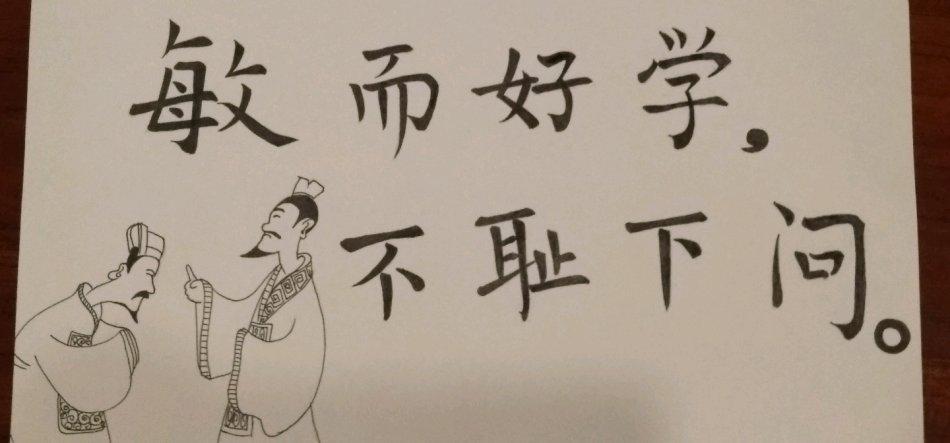 敏而好学,
不耻下问。